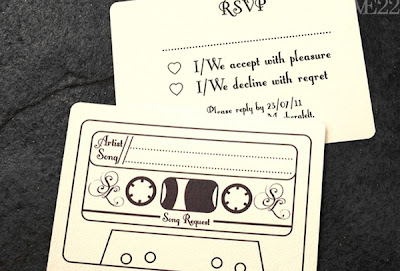 ME22
RSVP
I/We accept with pleasure
I/We decline with regret
Please reply by 23/07/11
Artist
Song
Song Request